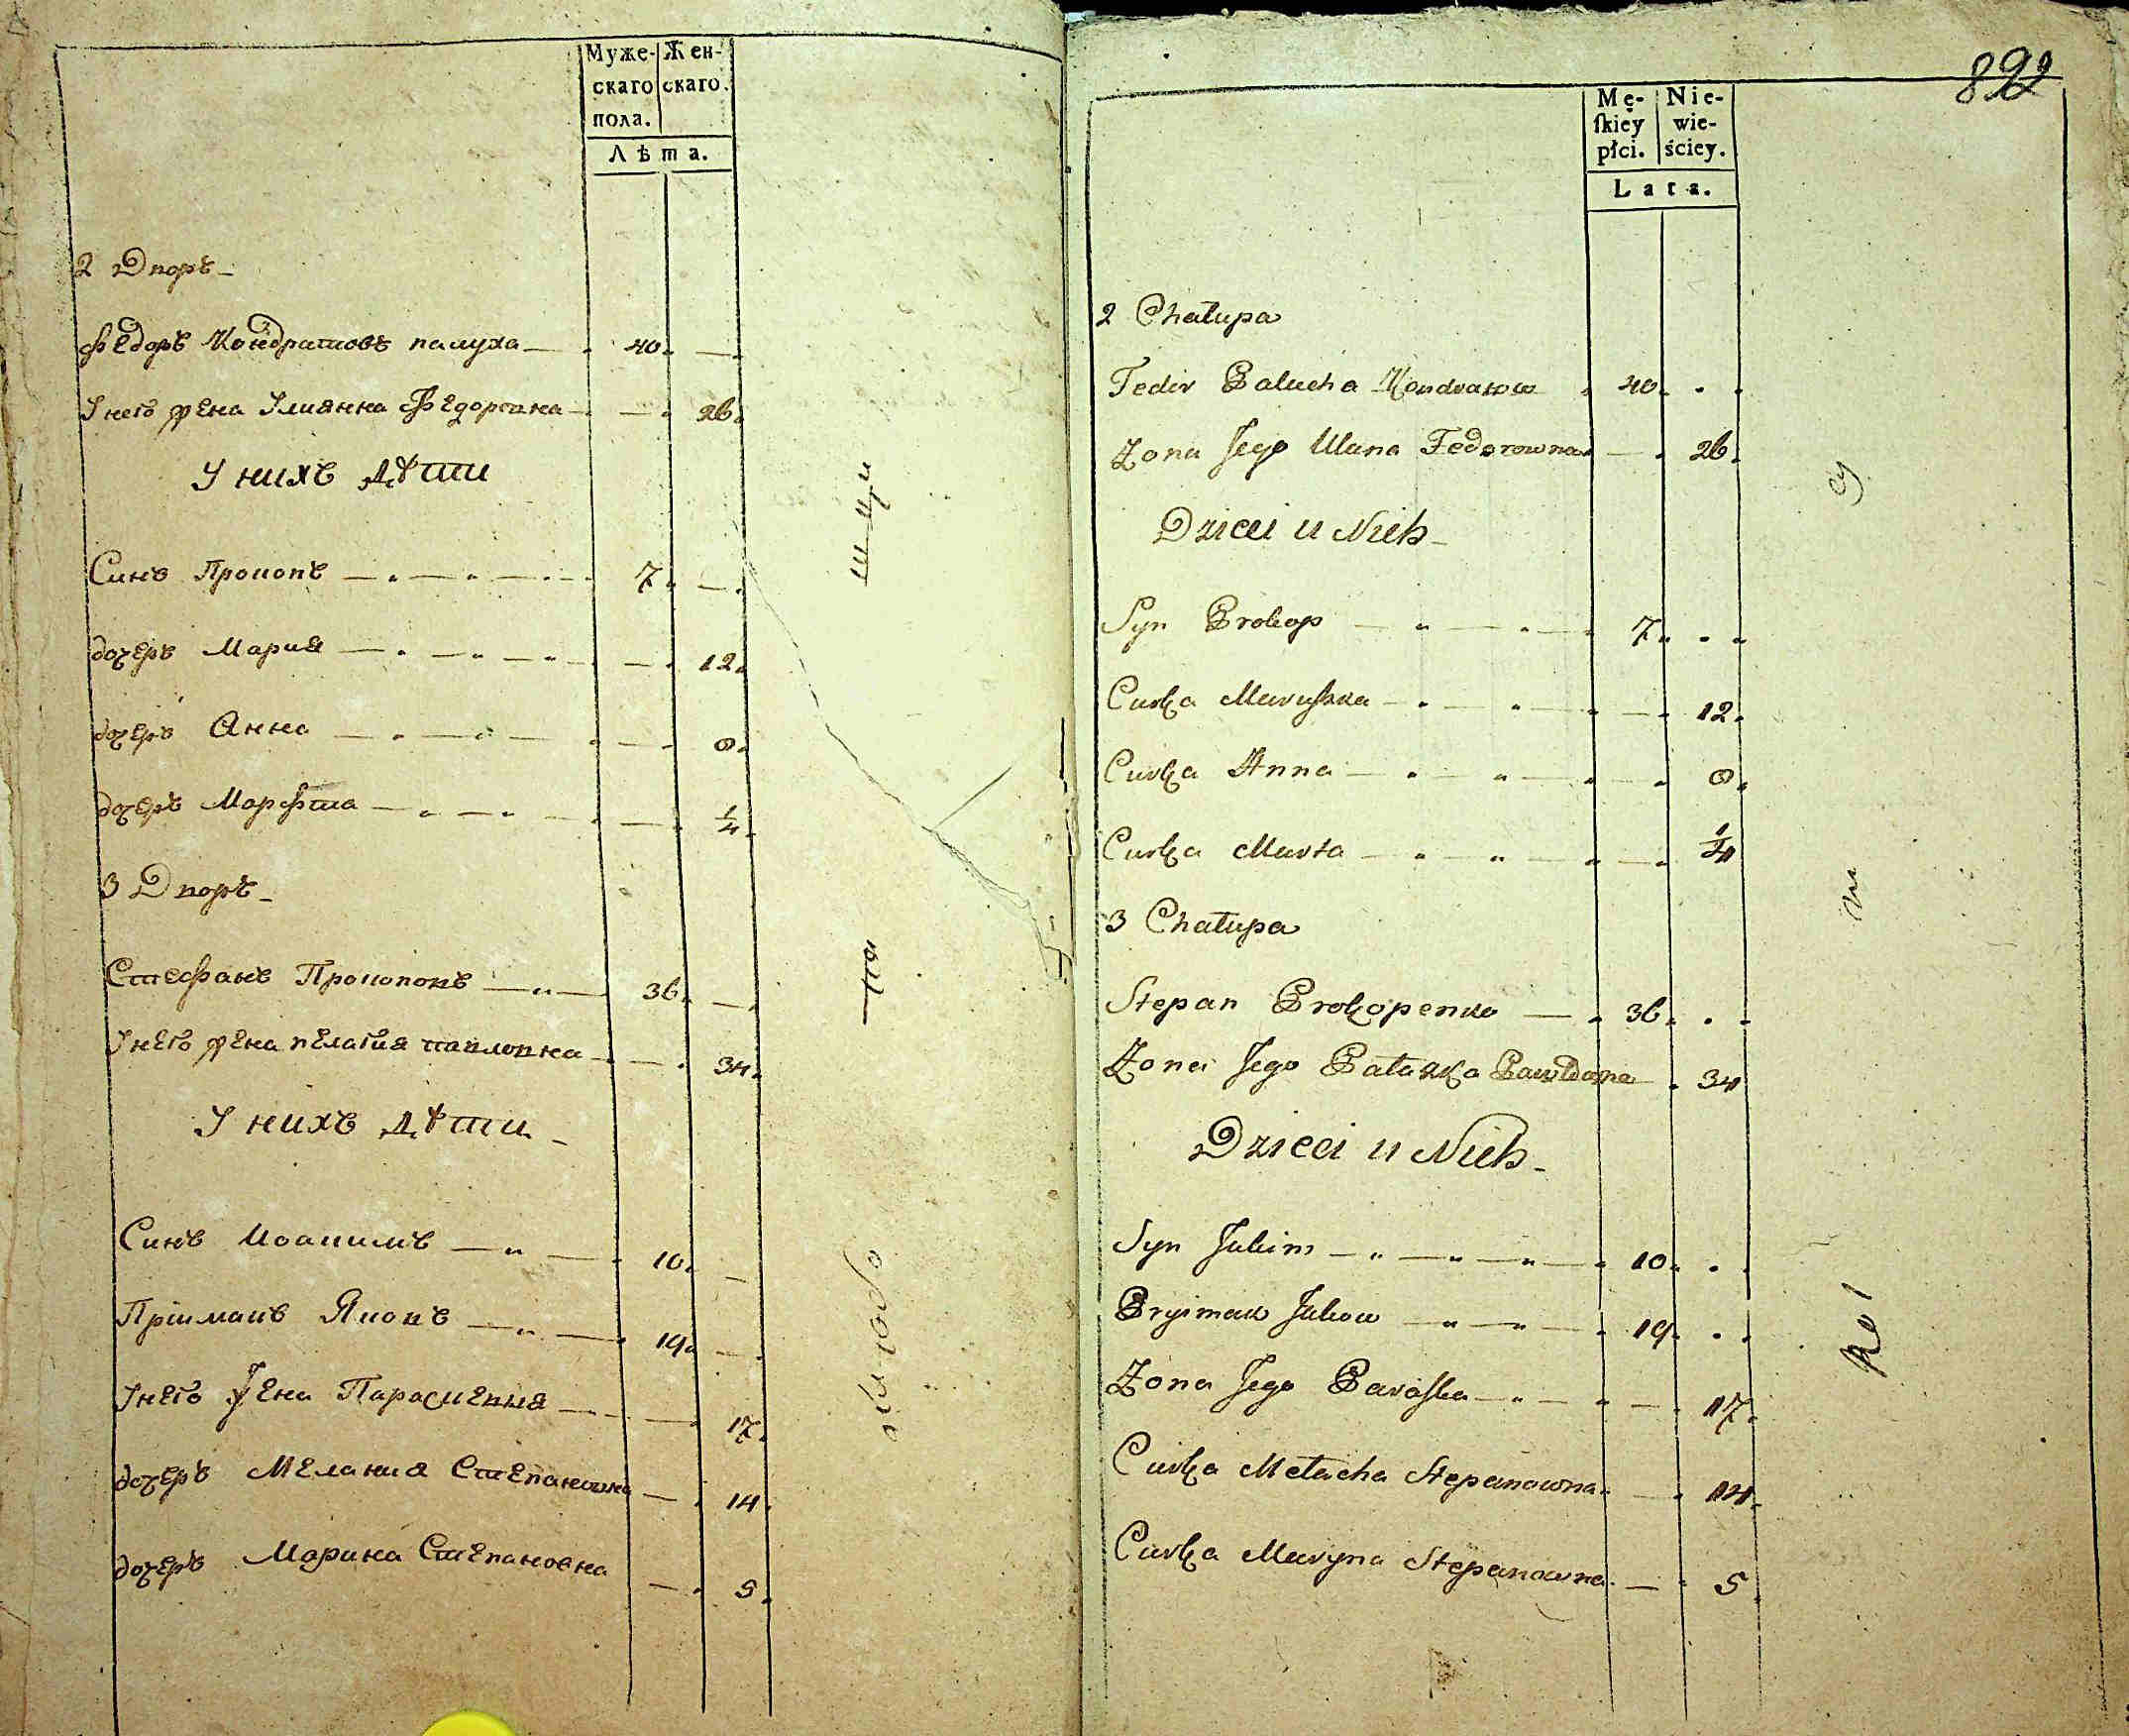 Муже- Жен-
скаго скаго.
пола.
Лѣта.
2 Дворъ
Федоръ Кондратовъ палуха 40
У него жена Улиянна Федоровна 26
У нихъ дѣти
Синъ Прокопъ 7
дочеръ Мария 12
дочеръ Анна 8
дочеръ Марфта 1/4
3 Дворъ
Стефанъ Прокоповъ 36
У него жена пелагия павловна 34
У нихъ дѣти
Синъ Иоакимъ 10
Пріимакъ Яковъ 19
У него жена Параскевия 17
дочеръ Мелания Степановна 14
дочеръ Марина Степановна 5
822
Mę- Nie-
ſkiey wie-
płci. ściey.
Lata.
2 Chałupa
Fedir Palucha Kondratow 40
Zona Jego Ulana Fedorowna 26
Dzieci u Nich
Syn Prokop 7
Curka Maruszka 12
Curka Anna 8
Curka Marta 1/4
3 Chałupa
Stepan Prokopenko 36
Zona Jego Pałazka Pawłowna 34
Dzieci u Nich
Syn Jakim 10
Pryimak Jakow 19
Zona Jego Paraska 17
Curka Mełacha Stepanowna 14
Curka Maryna Stepanowna 5